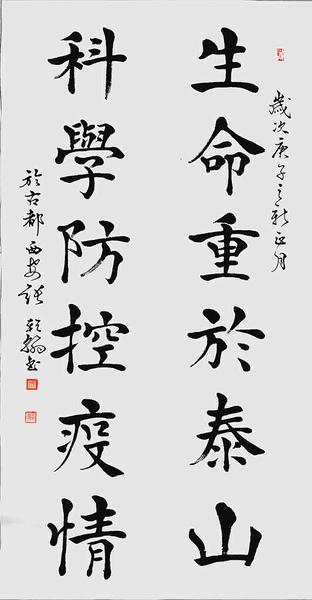 歲次庚子之新正月
生命重於泰山
科學防控疫情
於古都西安張翰書